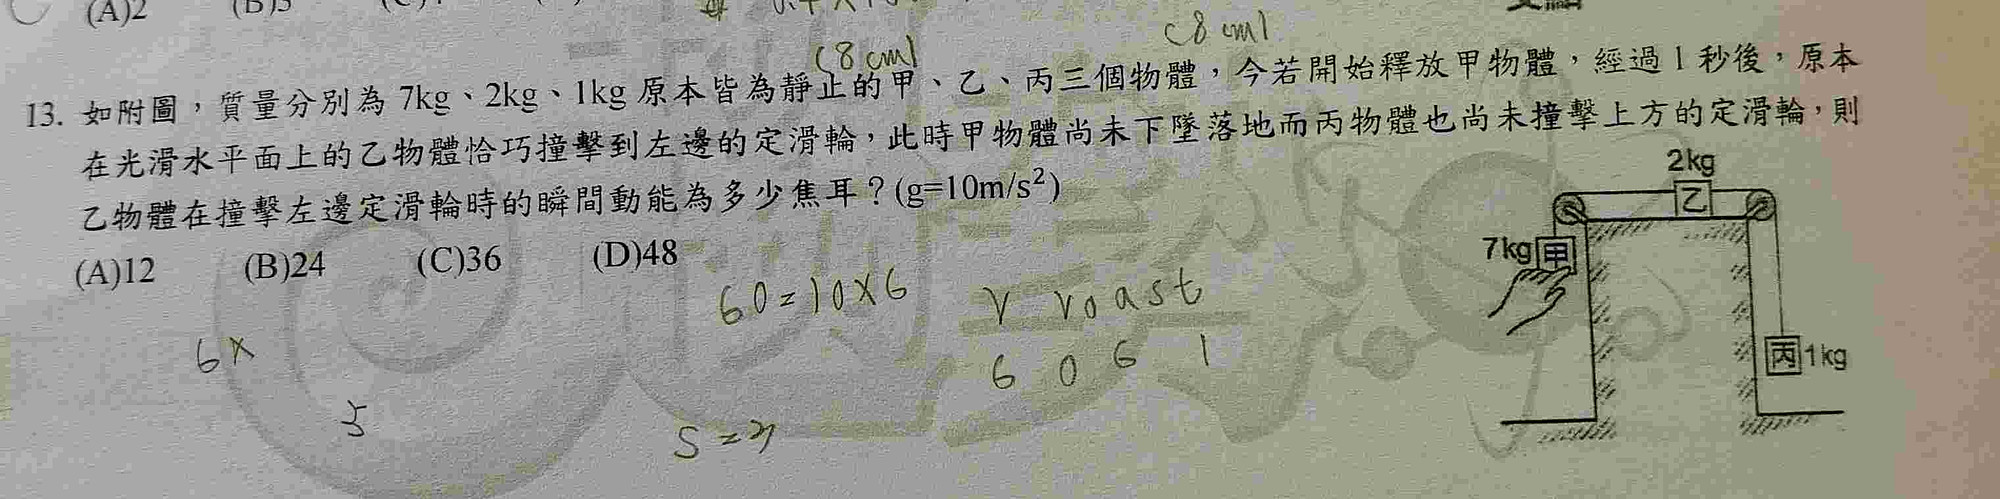 (A)2
(8 cm)
(8 cm)
13. 如附圖，質量分別為 7kg、2kg、1kg 原本皆為靜止的甲、乙、丙三個物體，今若開始釋放甲物體，經過 1 秒後，原本
在光滑水平面上的乙物體恰巧撞擊到左邊的定滑輪，此時甲物體尚未下墜落地而丙物體也尚未撞擊上方的定滑輪，則
乙物體在撞擊左邊定滑輪時的瞬間動能為多少焦耳？(g=10m/s²)
(A)12 (B)24 (C)36 (D)48
2kg
乙
7kg 甲
丙 1kg
60=10×6
V V0 a s t
6 0 6 1
6×
5
S=